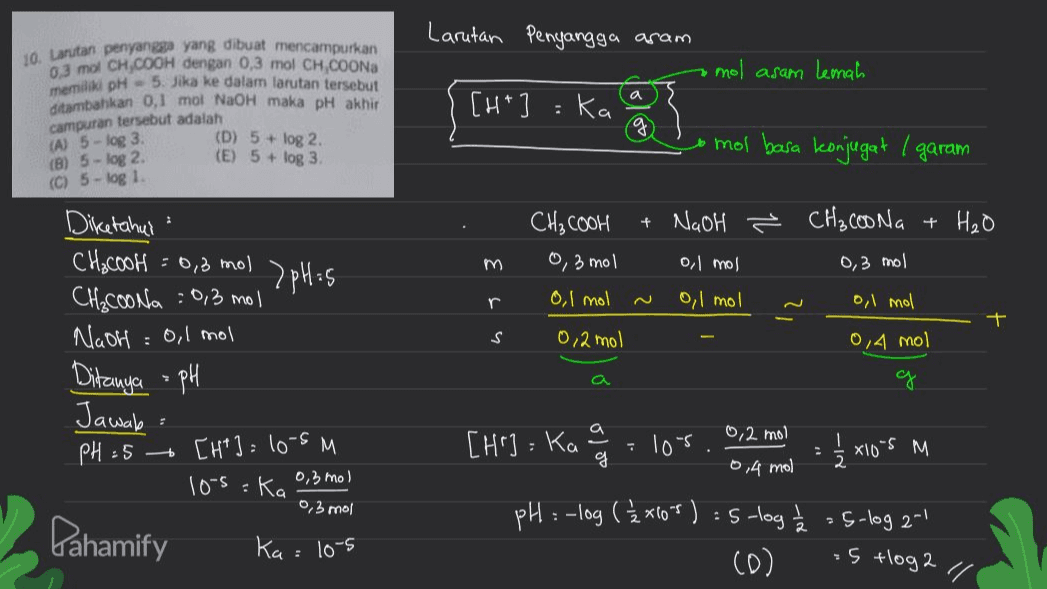 10. Larutan penyangga yang dibuat mencampurkan
0,3 mol CH₃COOH dengan 0,3 mol CH₃COONa
memiliki pH = 5. Jika ke dalam larutan tersebut
ditambahkan 0,1 mol NaOH maka pH akhir
campuran tersebut adalah
(A) 5 - log 3. (D) 5 + log 2.
(B) 5 - log 2. (E) 5 + log 3.
(C) 5 - log 1.
Larutan Penyangga asam
[H⁺] = Ka a/g
mol asam lemah
mol basa konjugat / garam
Diketahui :
CH₃COOH = 0,3 mol
CH₃COONa = 0,3 mol > pH = 5
NaOH = 0,1 mol
Ditanya = pH
Jawab :
PH = 5 → [H⁺] = 10⁻⁵ M
10⁻⁵ = Ka 0,3 mol / 0,3 mol
Ka = 10⁻⁵
CH₃COOH + NaOH ⇌ CH₃COONa + H₂O
m 0,3 mol 0,1 mol 0,3 mol
r 0,1 mol ~ 0,1 mol ~ 0,1 mol
— +
s 0,2 mol - 0,4 mol
a g
[H⁺] = Ka a/g = 10⁻⁵ . 0,2 mol / 0,4 mol = 1/2 x10⁻⁵ M
pH = -log (1/2 x10⁻⁵) = 5 - log 1/2 = 5 - log 2⁻¹
(D) = 5 + log 2 //
Pahamify